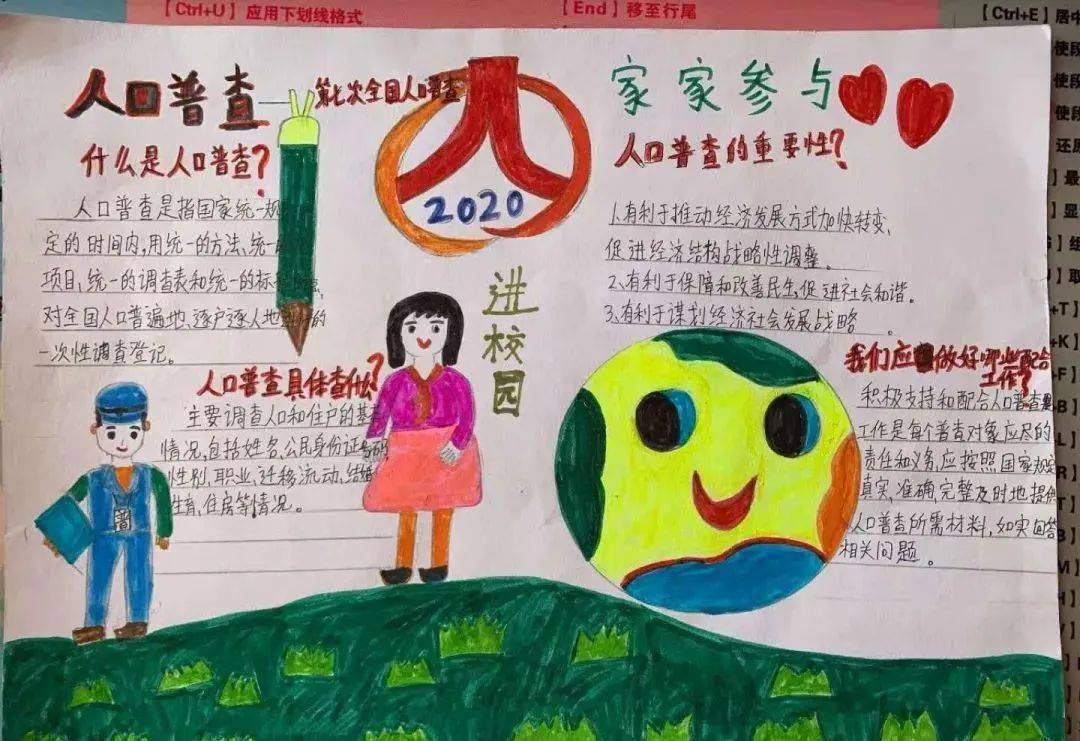 【Ctrl+U】应用下划线格式
【End】移至行尾
【Ctrl+E】居中
使段
使段
使段
还原
人口普查
第七次全国人口普查
什么是人口普查？
人口普查是指国家统一规
定的时间内,用统一的方法、统一
项目,统一的调查表和统一的标
对全国人口普遍地、逐户逐人地 的
一次性调查登记。
人口普查具体查什么？
主要调查人口和住户的基
情况,包括姓名,公民身份证号码
性别,职业,迁移流动、结婚
生育,住房等情况。
普
2020
进校园
家家参与
人口普查的重要性？
1.有利于推动经济发展方式加快转变,
促进经济结构战略性调整。
2、有利于保障和改善民生,促进社会和谐。
3、有利于谋划经济社会发展战略 。
我们应 做好哪些配合
工作？
积极支持和配合人口普查
工作是每个普查对象应尽的
责任和义务,应按照国家规定
真实,准确,完整及时地提供
人口普查所需材料,如实回答
相关问题。